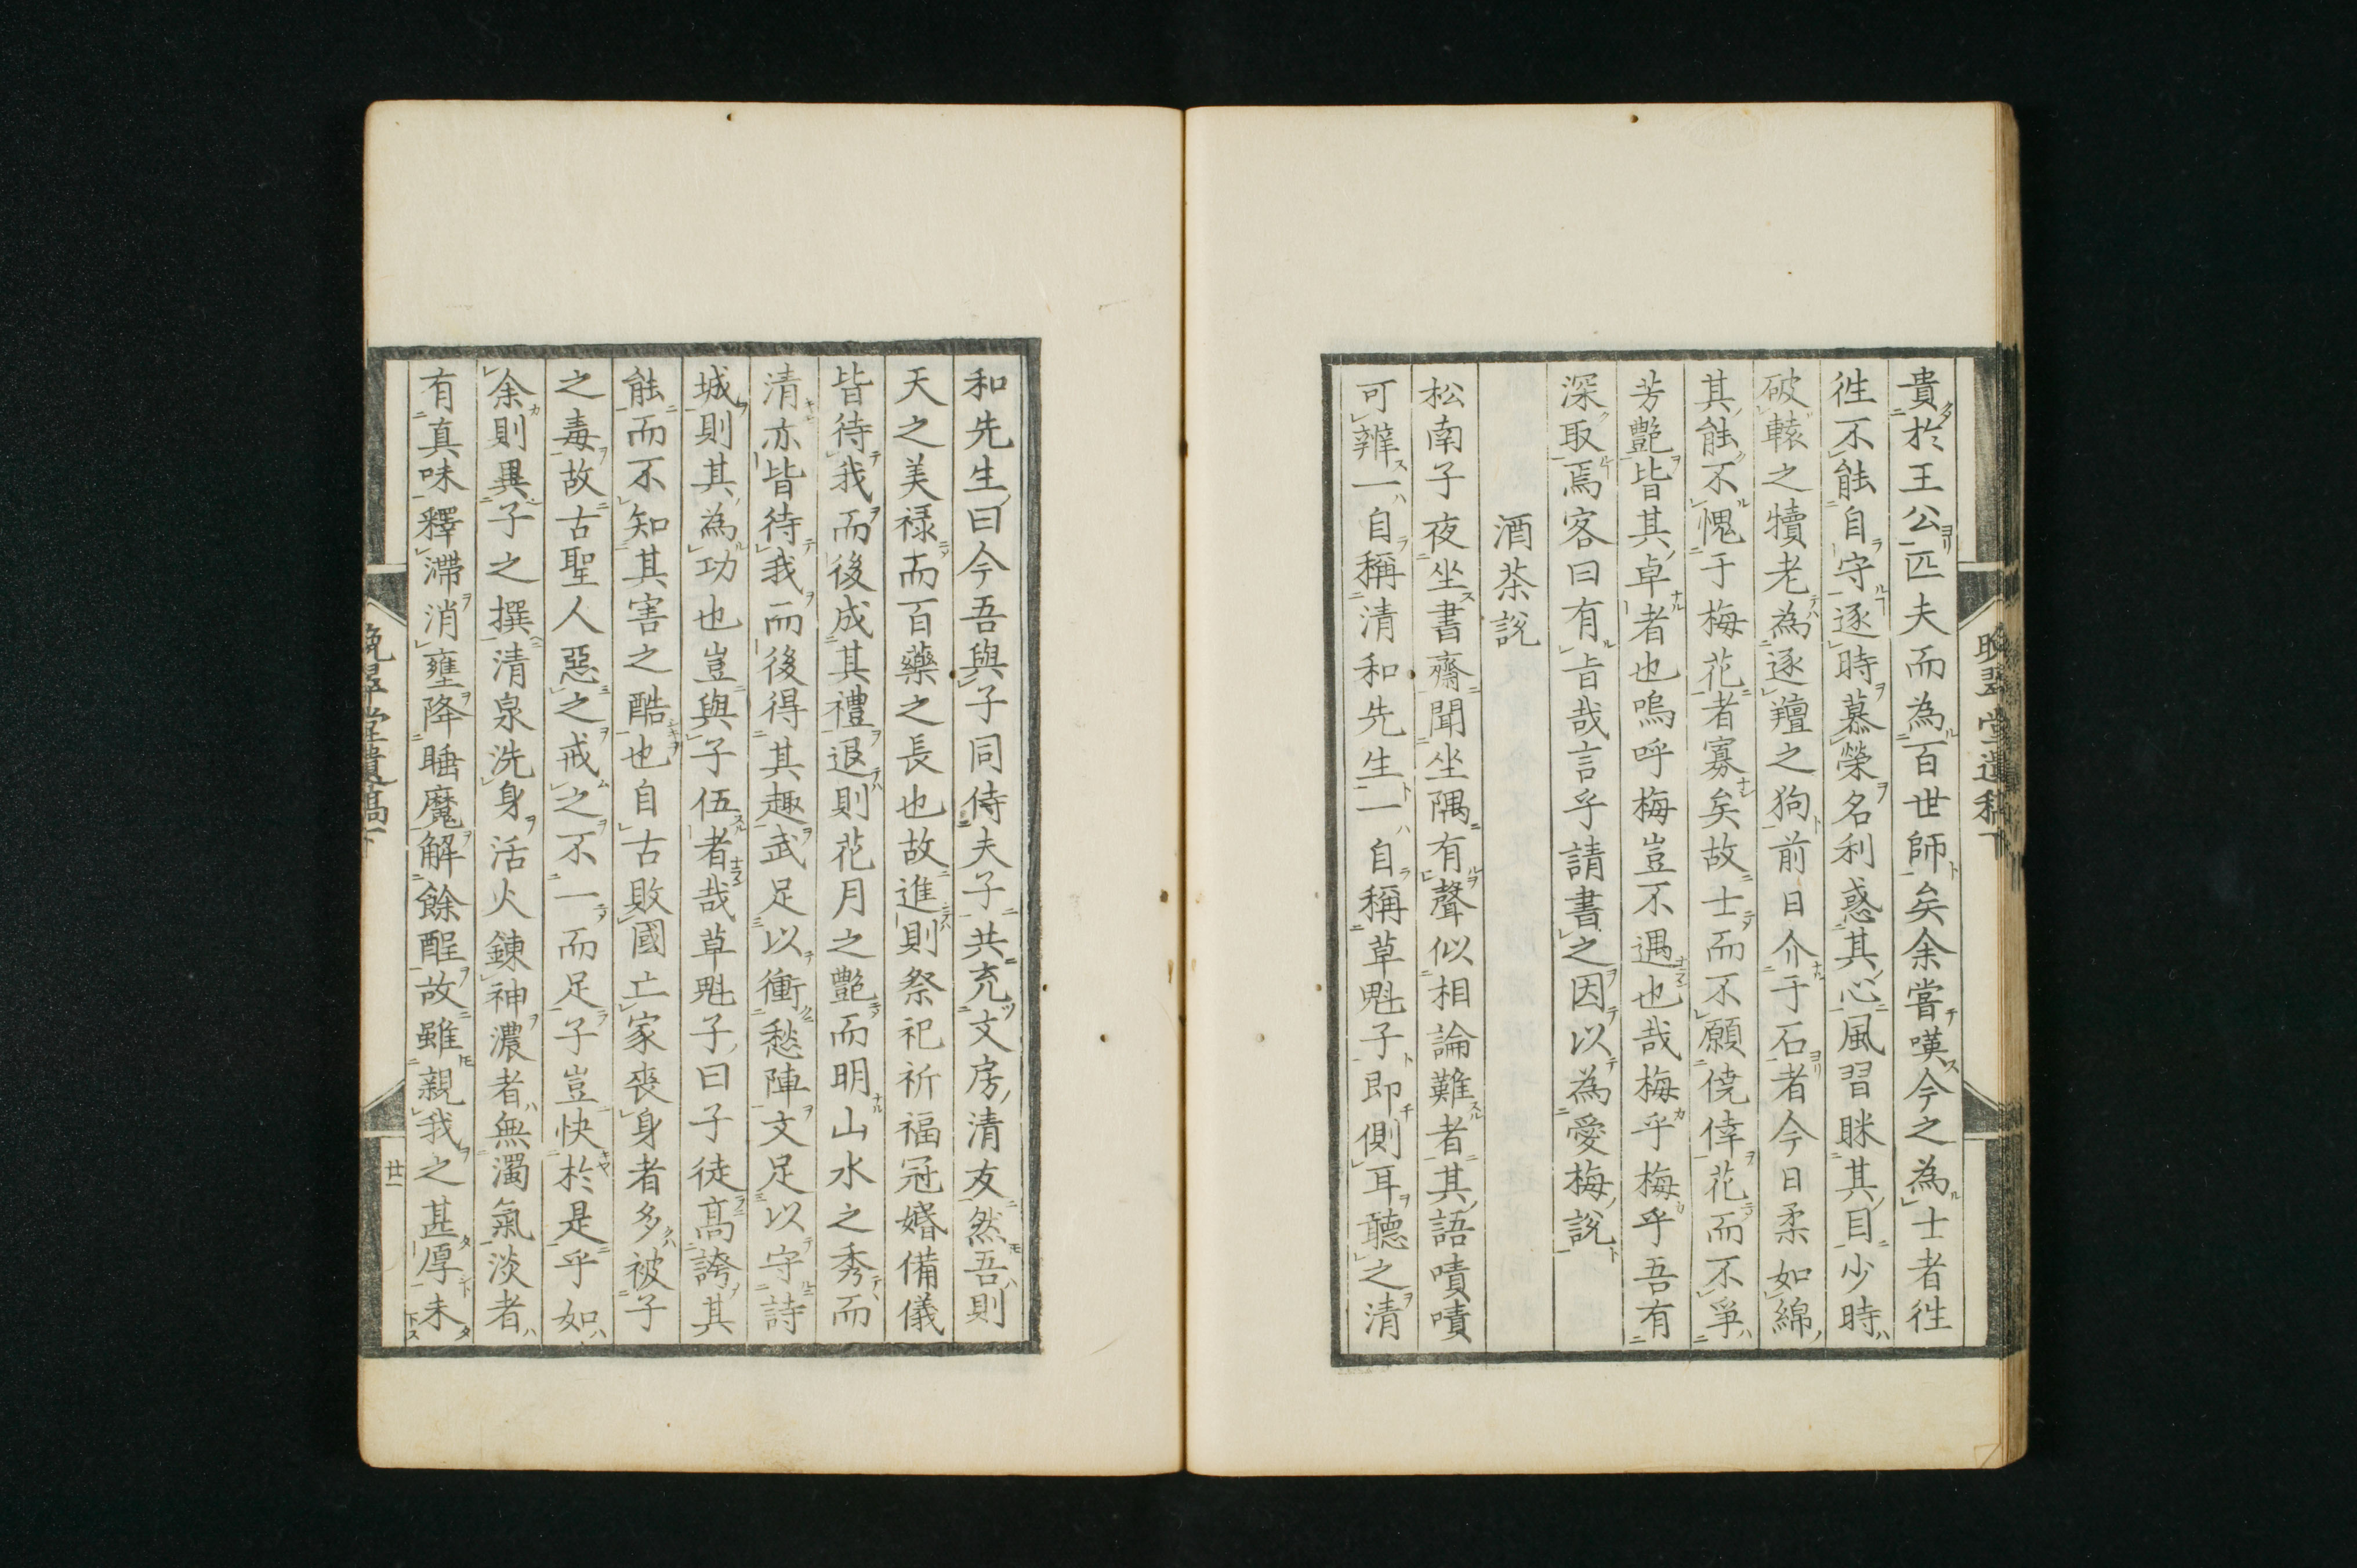 貴於王公匹夫而為百世師矣余嘗嘆今之為士者徃
徃不能自守逐時慕榮名利惑其心風習眯其目少時
破轅之犢老為逐羶之狗前日介于石者今日柔如綿
其能不愧于梅花者寡矣故士而不願僥倖花而不爭
芳艷皆其卓者也嗚呼梅豈不遇也哉梅乎梅乎吾有
深取焉客曰有旨哉言乎請書之因以為愛梅說
酒茶說
松南子夜坐書齋聞坐隅有聲似相論難者其語嘖嘖
可辨一自稱清和先生一自稱草魁子即側耳聽之清
和先生曰今吾與子同侍夫子共充文房清友然吾則
天之美禄而百藥之長也故進則祭祀祈福冠婚備儀
皆待我而後成其禮退則花月之艷而明山水之秀而
清亦皆待我而後得其趣武足以衝愁陣文足以守詩
城則其為功也豈與子伍者哉草魁子曰子徒髙誇其
能而不知其害之酷也自古敗國亡家喪身者多被子
之毒故古聖人惡之戒之不一而足子豈快於是乎如
余則異子之撰清泉洗身活火錬神濃者無濁氣淡者
有真味釋滯消壅降睡魔解餘酲故雖親我之甚厚未
晩翠堂遺稿下
廿一